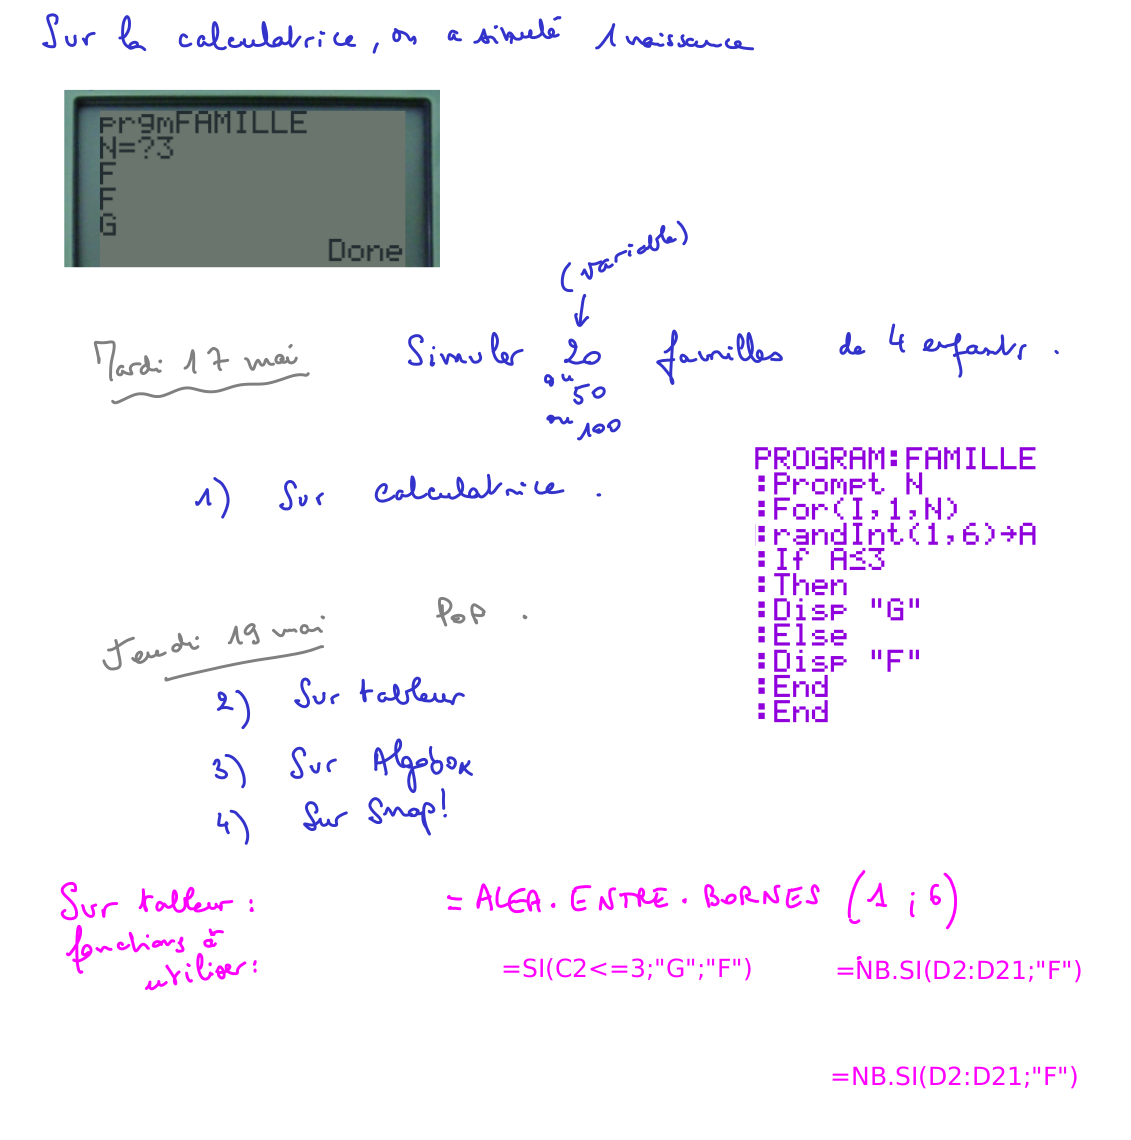 Sur la calculatrice, on a simulé 1 naissance
prgmFAMILLE
N=?3
F
F
G
Done
(variable)
Mardi 17 mai
Simuler 20 familles de 4 enfants.
ou 50
ou 100
1) Sur calculatrice.
PROGRAM:FAMILLE
:Prompt N
:For(I,1,N)
:randInt(1,6)→A
:If A≤3
:Then
:Disp "G"
:Else
:Disp "F"
:End
:End
Jeudi 19 mai
POP.
2) Sur tableur
3) Sur Algobox
4) Sur Snap!
Sur tableur :
fonctions à
utiliser :
= ALEA.ENTRE.BORNES (1 ; 6)
=SI(C2<=3;"G";"F")
=NB.SI(D2:D21;"F")
=NB.SI(D2:D21;"F")